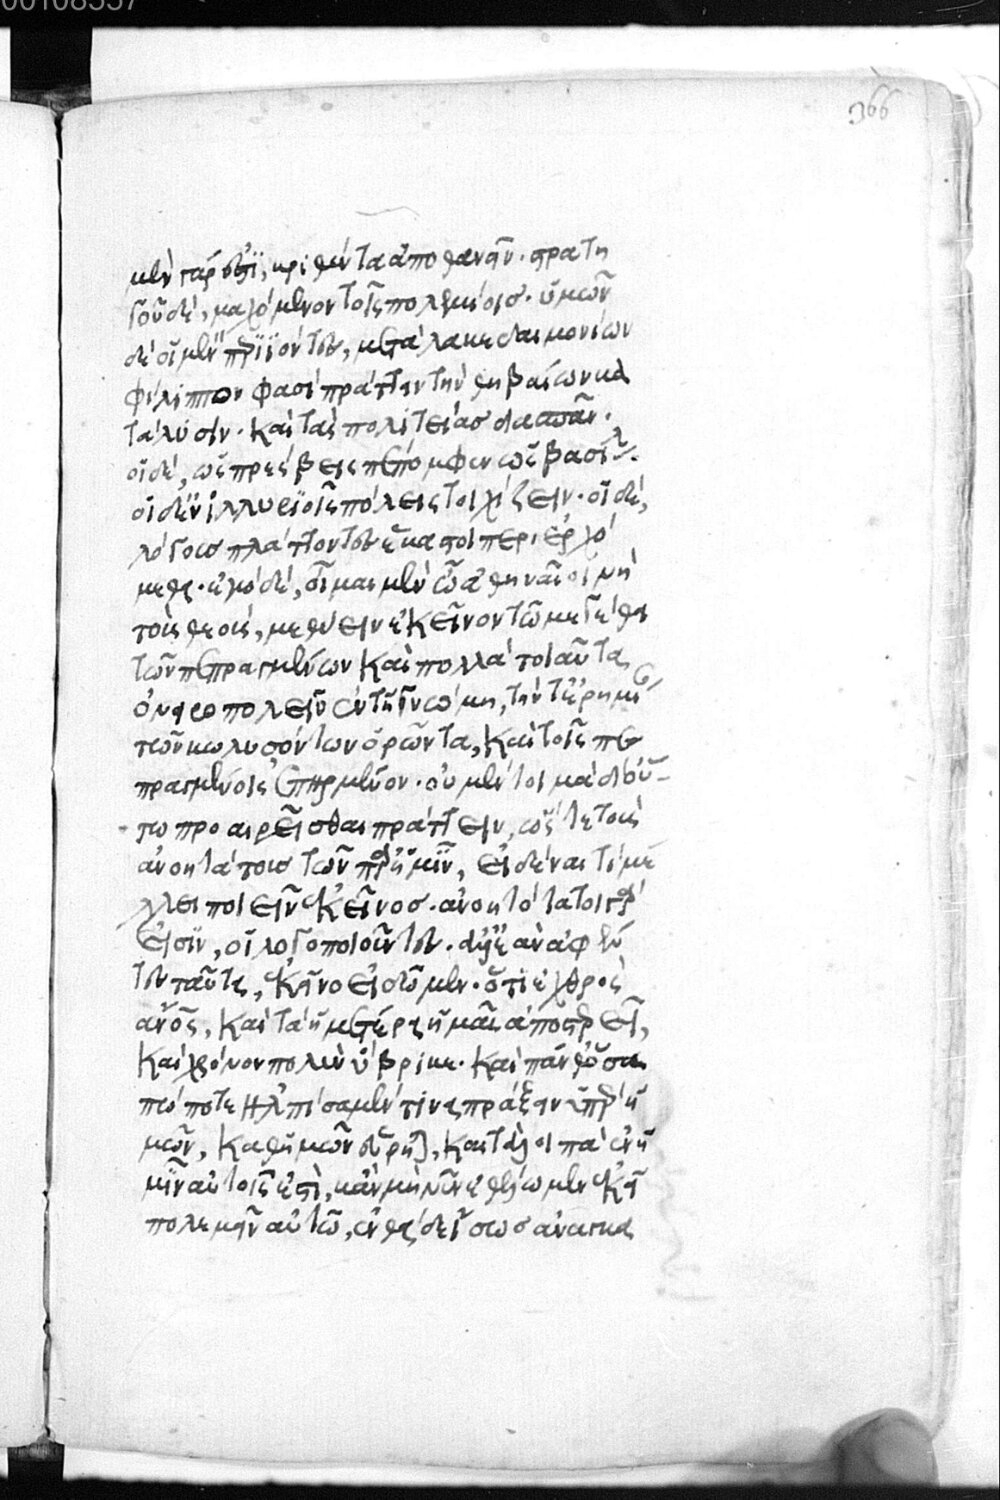 μὲν γάρ ἐστϊ, κριθέντα ἀποθανεῖν. στρατη
γοῦ δὲ, μαχόμενον τοῖς πολεμίοισ. ὑμῶν
δὲ οἱ μὲν πϵριϊόντες, μετὰ λακεδαιμονίων
φίλιππον φασὶ πράττειν τὴν θηβαίων κα
τάλυσιν. καὶ τὰς πολιτείασ διασπᾶν.
οἱ δὲ, ὡς πρέσβεις πέπομφεν ὡς βασιλ.
οἱ δ' ἐν ἰλλυριοῖς πόλεις τειχίζειν. οἱ δὲ,
λόγουσ πλάττοντες ἕκαστοι περιερχό
μεθα. ἐγὼ δὲ, οἶμαι μὲν ὦ ἀθηναῖοι νὴ
τοὺς θεοὺς, μεθύειν ἐκεῖνον τῶ μεγέθει
τῶν πεπραγμένων καὶ πολλὰ τοιαῦτα
ὀνειροπολεῖν ἐν τῆ γνώμη, τήν τε ἐρημί
τῶν κωλυσόντων ὁρῶντα, καὶ τοῖς πε
πραγμένοις ἐπηρμένον. οὐ μέντοι μὰ δί' οὕ
τω προαιρεῖσθαι πράττειν, ὥστε τοὺς
ἀνοητάτουσ τῶν παρ' ἡμῖν, εἰδέναι τί μέ
λλει ποιεῖν ἐκεῖνοσ. ἀνοητότατοι γάρ
εἰσϊν, οἱ λογοποιοῦντες. ἀλλ' ἐὰν ἀφέν
τες ταῦτα, ἐκεῖνο εἰδῶμεν. ὅτι ἐχθρὸς
ἄνος, καὶ τὰ ἡμέτερα ἡμᾶς ἀποστερεῖ,
καὶ χρόνον πολὺν ὕβρικε. καὶ πάνθ' ὅσα
πώποτε ἠλπίσαμέν τινα πράξειν ὑπὲρ ἡ
μῶν, καθ' ἡμῶν εὕρηται, καὶ τὰ λοιπὰ ἐν ἡ
μῖν αὐτοῖς ἐστὶ, κἂν μὴ νῦν ἐθέλωμεν ἐκεῖ
πολεμεῖν αὐτῶ, ἐνθάδε ἴσωσ ἀναγκα
366